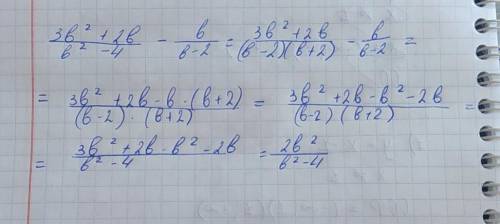 (3в² + 2в)/(в² - 4) - в/(в-2) = (3в² + 2в)/((в-2)(в+2)) - в/(в-2) =
= (3в² + 2в - в · (в+2))/((в-2) · (в+2)) = (3в² + 2в - в² - 2в)/((в-2) (в+2)) =
= (3в² + 2в · в² - 2в)/(в² - 4) = 2в²/(в² - 4)